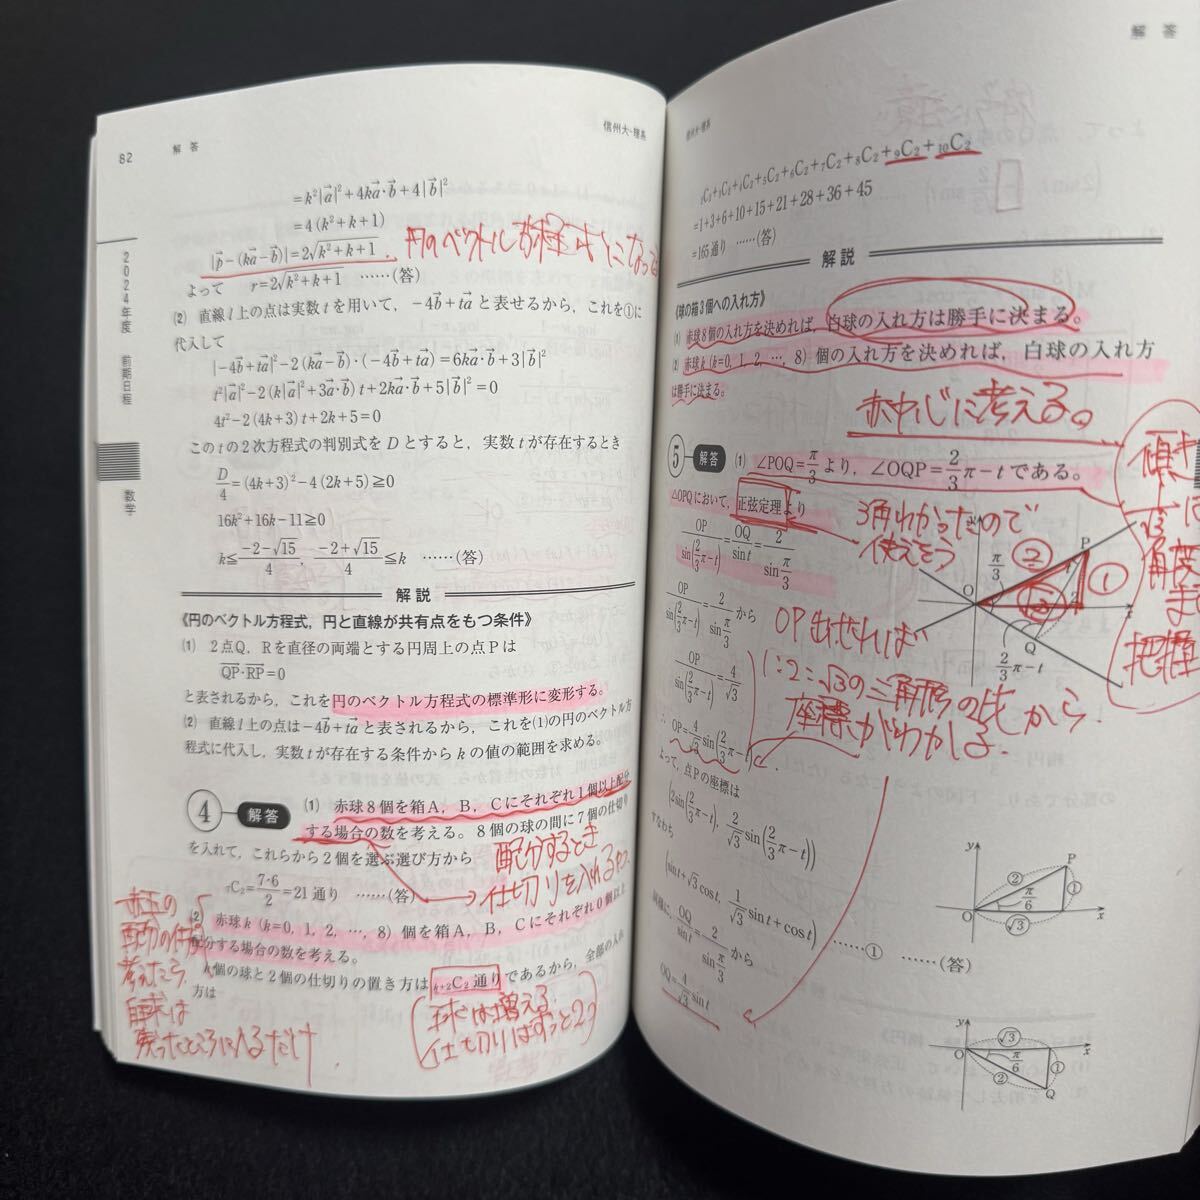 82 解答
信州大-理系
2024年度 前期日程 数学
=k²|a⃗|²+4ka⃗·b⃗+4|b⃗|²
=4(k²+k+1)
|p⃗-(ka⃗-b⃗)|=2√(k²+k+1)
円のベクトル方程式になってる
よって r=2√(k²+k+1) ……(答)
(2) 直線 l 上の点は実数 t を用いて，-4b⃗+ta⃗ と表せるから，これを①に
代入して
|-4b⃗+ta⃗|²-2(ka⃗-b⃗)·(-4b⃗+ta⃗)=6ka⃗·b⃗+3|b⃗|²
t²|a⃗|²-2(k|a⃗|²+3a⃗·b⃗)t+2ka⃗·b⃗+5|b⃗|²=0
4t²-2(4k+3)t+2k+5=0
この t の2次方程式の判別式を D とすると，実数 t が存在するとき
D/4=(4k+3)²-4(2k+5)≧0
16k²+16k-11≧0
k≦(-2-√15)/4，(-2+√15)/4≦k ……(答)
解説
《円のベクトル方程式，円と直線が共有点をもつ条件》
(1) 2点Q，Rを直径の両端とする円周上の点Pは
QP·RP=0
と表されるから，これを円のベクトル方程式の標準形に変形する。
(2) 直線 l 上の点は -4b⃗+ta⃗ と表されるから，これを(1)の円のベクトル方
程式に代入し，実数 t が存在する条件から k の値の範囲を求める。
4 解答 (1) 赤球8個を箱A，B，Cにそれぞれ1個以上配分
する場合の数を考える。8個の球の間に7個の仕切り
を入れて，これらから2個を選ぶ選び方から
配分するとき
仕切りを入れるやつ
₇C₂=7·6/2=21通り ……(答)
(2) 赤球 k (k=0, 1, 2, …, 8) 個を箱A，B，Cにそれぞれ0個以上
配分する場合の数を考える。
k個の球と2個の仕切りの置き方は ₖ₊₂C₂通りであるから，全部の入れ
方は
赤玉の
配分の仕方
考えたら
白球は
残ったところに入るだけ
球は増える
仕切りはずっと2つ
解答
信州大-理系
₂C₂+₃C₂+₄C₂+₅C₂+₆C₂+₇C₂+₈C₂+₉C₂+₁₀C₂
=1+3+6+10+15+21+28+36+45
=165通り ……(答)
解説
《球の箱3個への入れ方》
(1) 赤球8個の入れ方を決めれば，白球の入れ方は勝手に決まる。
(2) 赤球 k (k=0, 1, 2, …, 8) 個の入れ方を決めれば，白球の入れ方
は勝手に決まる。
赤中心に考える。
5 解答 (1) ∠POQ=π/3 より，∠OQP=2/3π-t である。
△OPQにおいて，正弦定理より
3角わかったので
使えそう
OP/sin(2/3π-t)=OQ/sin t=2/sin π/3
OP/sin(2/3π-t)=2/sin π/3 から
OP/sin(2/3π-t)=4/√3
∴ OP=4/√3 sin(2/3π-t)
OP出せれば
1:2:√3の三角形の比から
座標がわかる。
よって，点Pの座標は
(2sin(2/3π-t), 2/√3 sin(2/3π-t))
すなわち
(sin t+√3cos t, 1/√3 sin t+cos t) ……① ……(答)
同様に，OQ/sin t=2/sin π/3 から
OQ=4/√3 sin t
傾き
√3
角度
まで
把握
π/3 ② P ① O 2 t Q 2/3π-t
y P ② ① π/6 O √3 x
y √3 O π/6 ① x ② Q